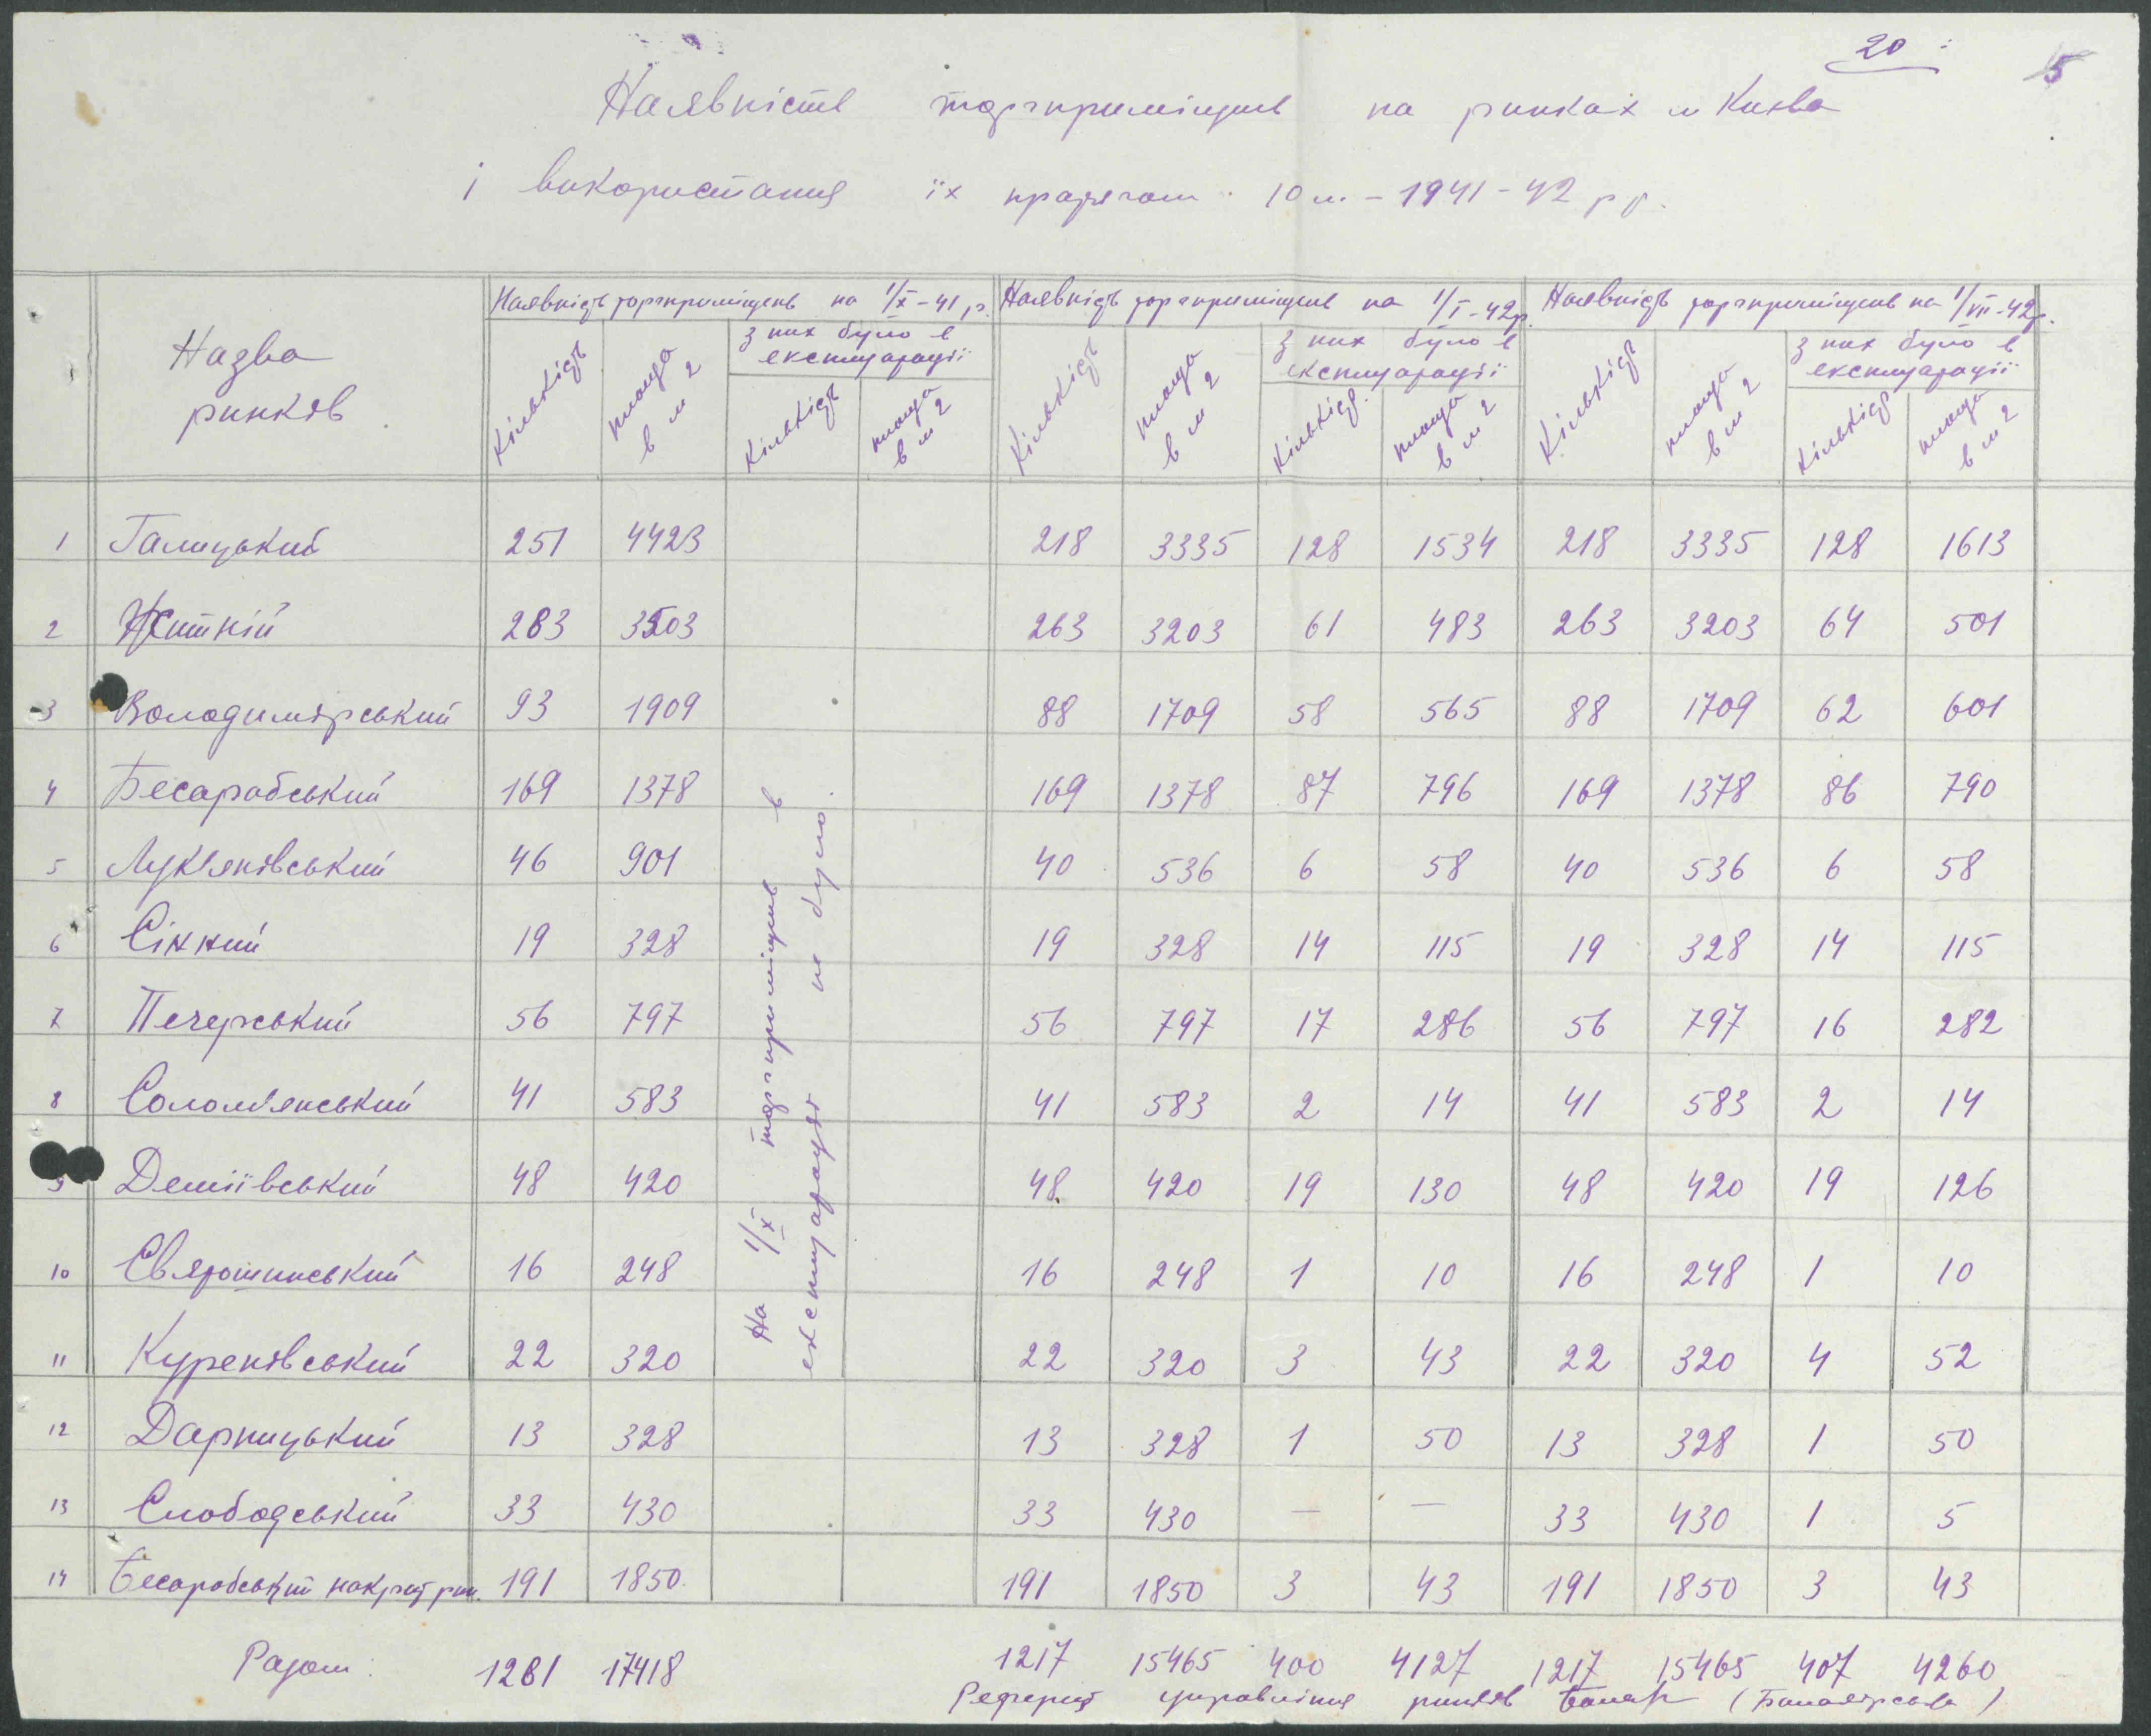 20
5
Наявність торгприміщень на ринках м Києва
і використання їх протягом 10 м. – 1941-42 рр.
Назва ринків
Наявність торгприміщень на 1/X-41 р. Наявність торгприміщень на 1/I-42р. Наявність торгприміщень на 1/VII-42р.
Кількість площа в м2 з них було в експлуатації Кількість площа в м2 з них було в експлуатації Кількість площа в м2 з них було в експлуатації
Кількість площа в м2 Кількість площа в м2 Кількість площа в м2
1 Галицький 251 4423 218 3335 128 1534 218 3335 128 1613
2 Житній 283 3503 263 3203 61 483 263 3203 64 501
3 Володимирський 93 1909 88 1709 58 565 88 1709 62 601
4 Бесарабський 169 1378 169 1378 87 796 169 1378 86 790
5 Лук'янівський 46 901 40 536 6 58 40 536 6 58
6 Сінний 19 328 19 328 14 115 19 328 14 115
7 Печерський 56 797 56 797 17 286 56 797 16 282
8 Солом'янський 41 583 41 583 2 14 41 583 2 14
9 Деміївський 48 420 48 420 19 130 48 420 19 126
10 Святошинський 16 248 16 248 1 10 16 248 1 10
11 Куренівський 22 320 22 320 3 43 22 320 4 52
12 Дарницький 13 328 13 328 1 50 13 328 1 50
13 Слободський 33 430 33 430 — — 33 430 1 5
14 Бесарабський накрит рин. 191 1850 191 1850 3 43 191 1850 3 43
На 1/X торгприміщень в
експлуатації не було.
Разом: 1281 17418 1217 15465 400 4127 1217 15465 407 4260
Референт управління ринків